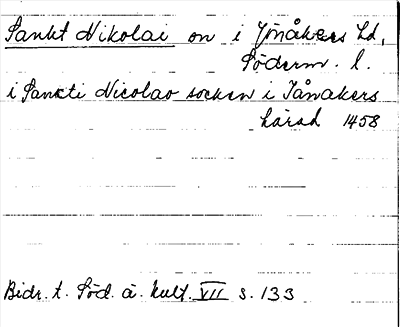 Sankt Nikolai on i Jönåkers hd,
Söderm. l.
i Sancti Nicolao socken i Jånakers
härad 1458
Bidr. t. Söd. ä. kult. VII s. 133